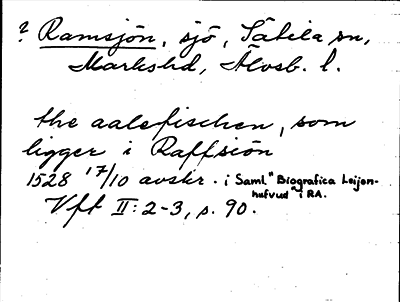 ? Ramsjön, sjö, Sätila sn,
Markshd, Älvsb. l.
the aalefischen, som
ligger i Raffsiön
1528 17/10 avskr. i Saml. "Biografica Leijon-
hufvud" i RA.
Vft II: 2-3, s. 90.